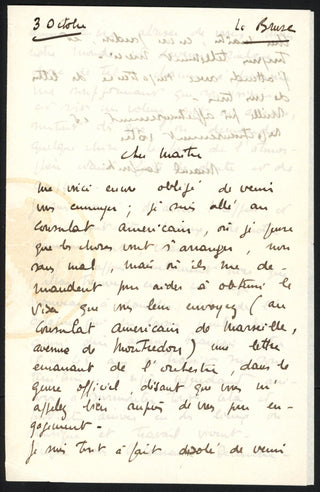 3 Octobre Le Brusc
Cher Maître
me voici encore obligé de venir
vous ennuyer ; je suis allé au
consulat americain, où je pense
que les choses vont s'arranger, non
sans mal, mais où ils me de-
mandent pour aider à obtenir le
Visa que vous leur envoyez (au
Consulat americain de Marseille,
avenue de Montredon) une lettre
emanant de l'orchestre, dans le
genre officiel, disant que vous m'
appelez bien auprès de vous pour en-
gagement -
Je suis tout à fait désolé de venir